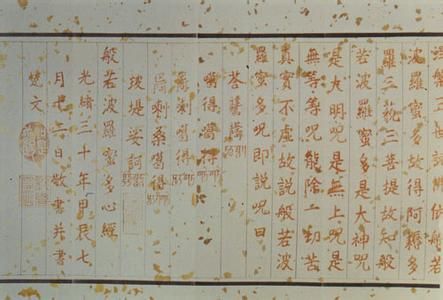 諸佛依般若
波羅蜜多故得阿耨多
羅三藐三菩提故知般
若波羅蜜多是大神咒
是大明咒是無上咒是
無等等咒能除一切苦
真實不虛故說般若波
羅蜜多咒即說咒曰
得 得
剌 得
剌桑 得
提娑訶
般若波羅蜜多心經
光緒三十年甲辰七
月廿六日敬書并書
梵文